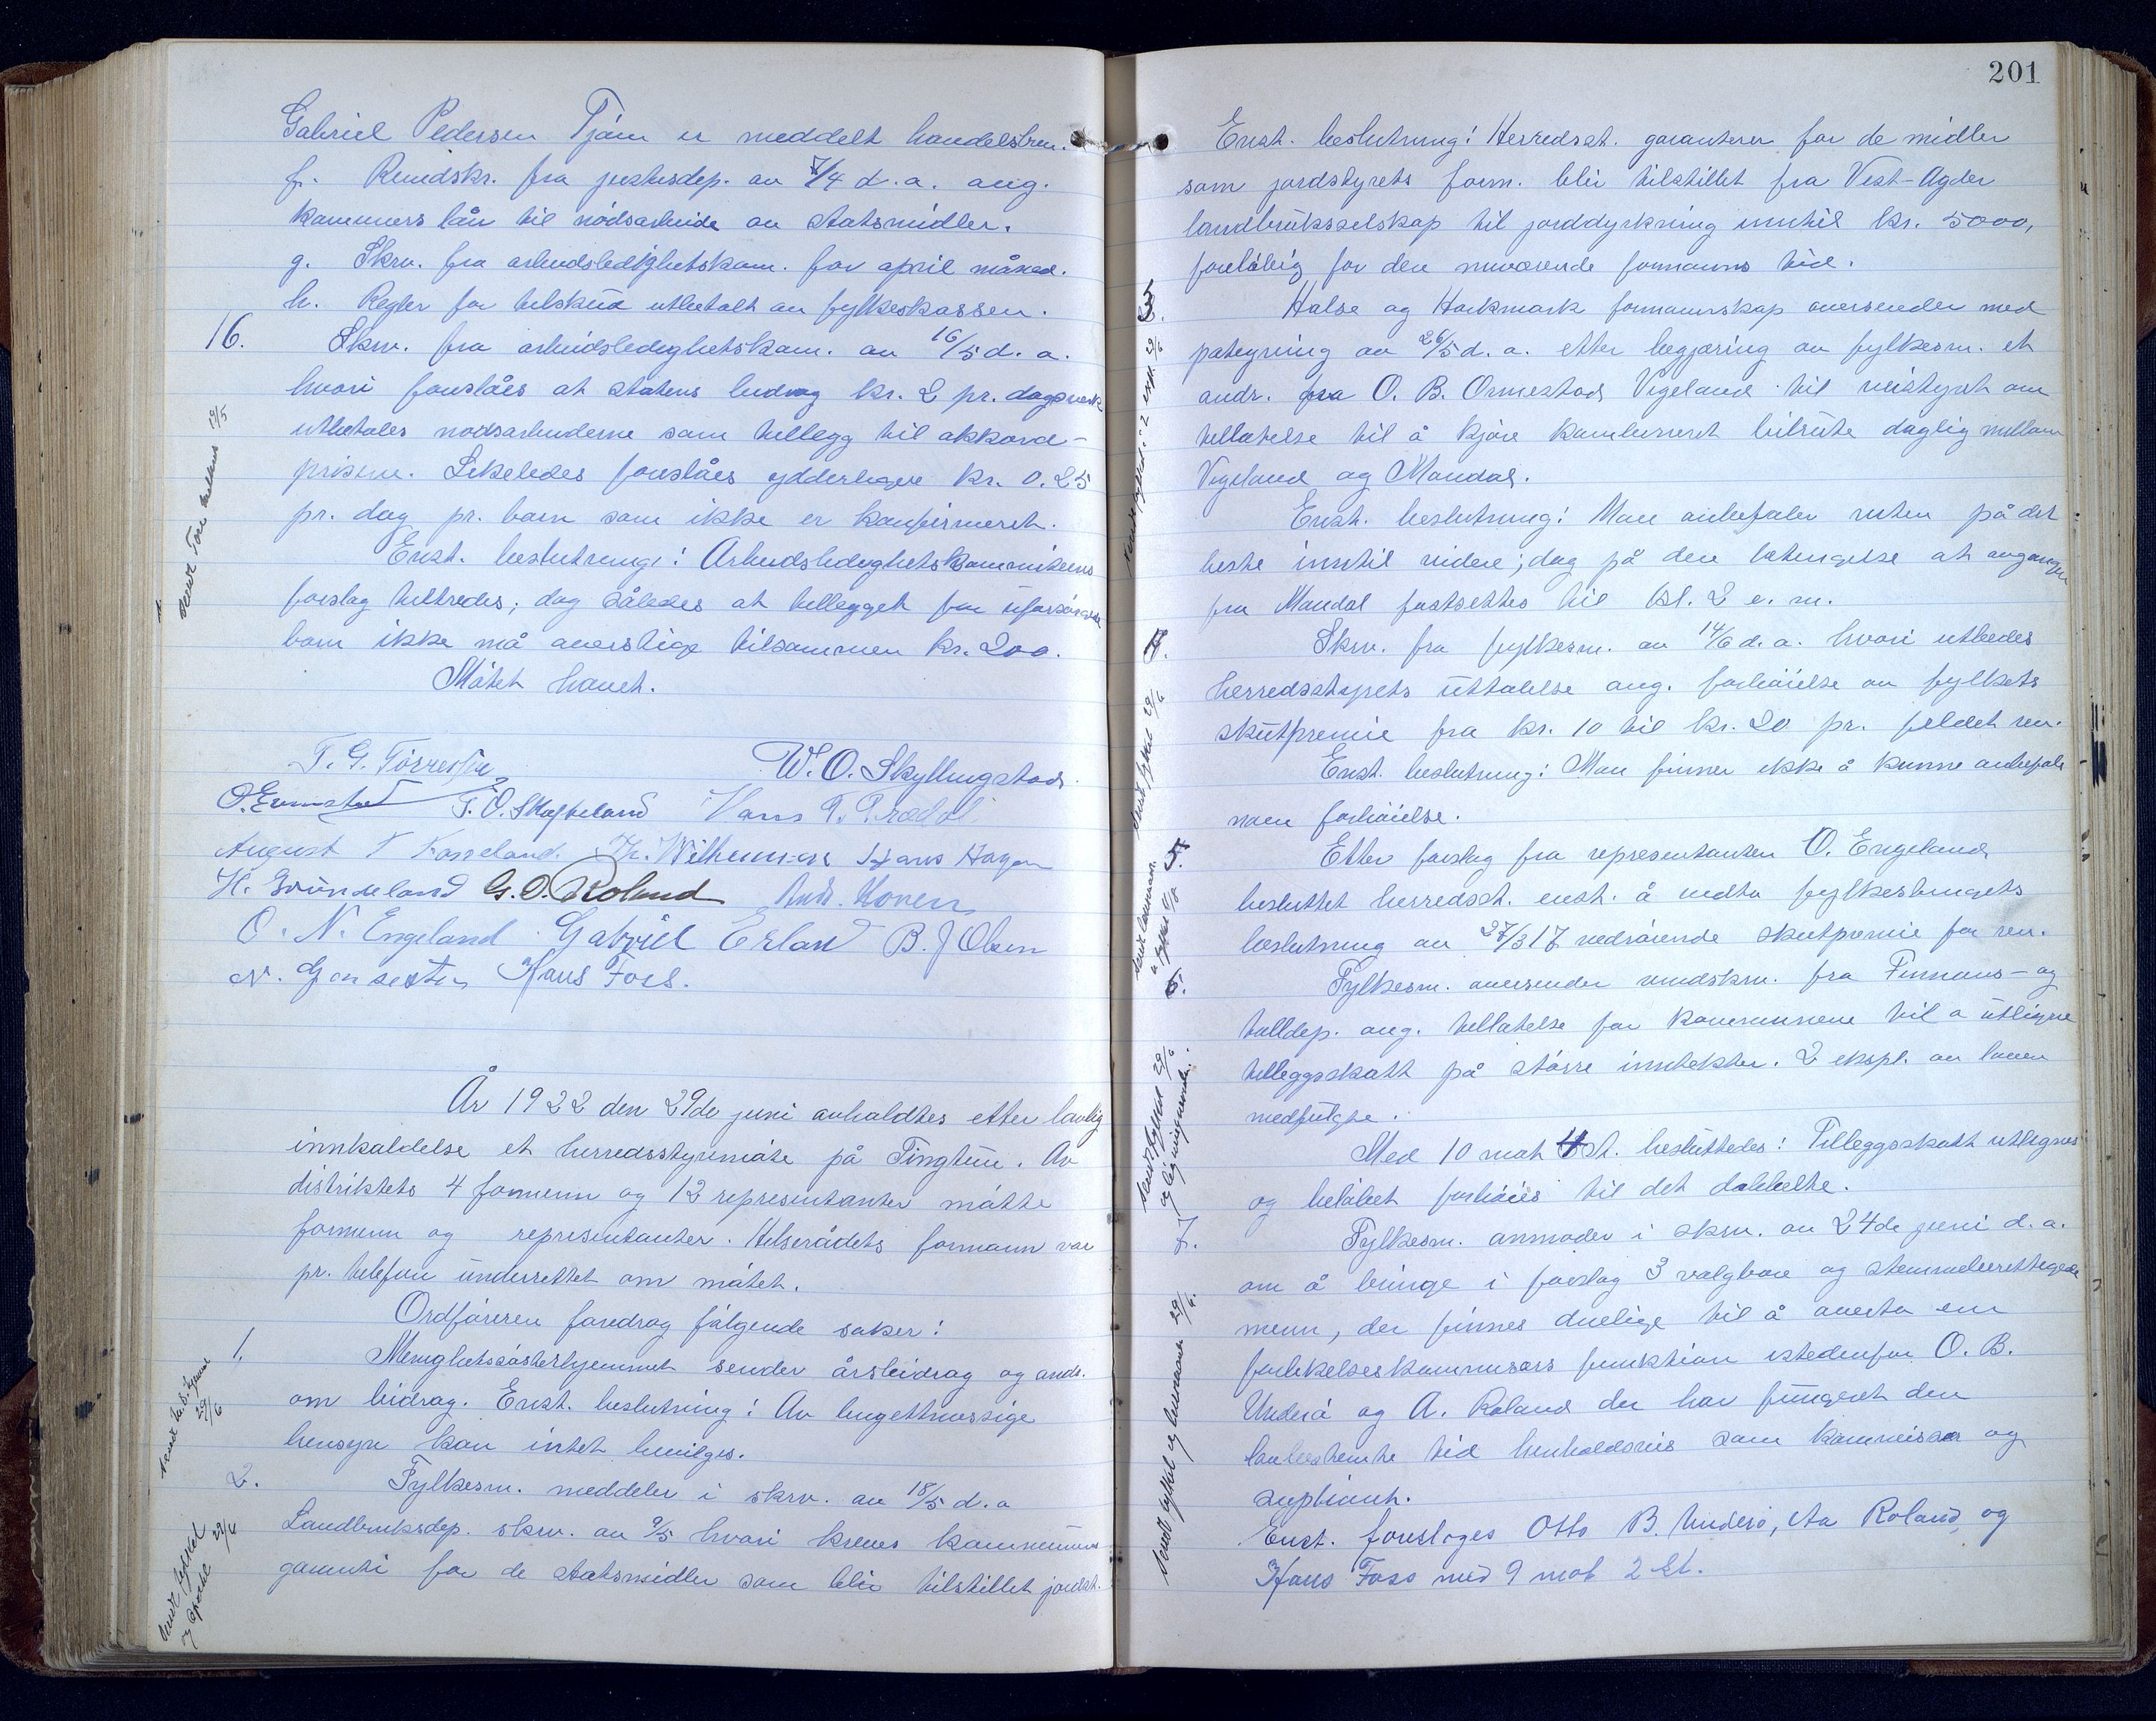 Gabriel Pedersen Tjöm er meddelt handelsbrev.
f. Rundskr. fra justisdep. av 7/4 d. a. ang.
kommuners lån til nödsarbeide av statsmidler.
g. Skrv. fra arbeidsledighetskom. for april måned.
h. Regler for tilskud utbetalt av fylkeskassen.
16. Skrv. fra arbeidsledighetskom. av 16/5 d. a.
hvori foreslåes at statens bidrag kr. 2 pr. dagsverk
utbetales nödsarbeiderne som tillegg til akkord-
prisene. Likeledes foreslåes ydderligere kr. 0.25
pr. dag pr. barn som ikke er konfirmeret.
Enst. beslutning: Arbeidsledighetskommiteens
forslag tiltredes; dog således at tillegget for uforsörgede
barn ikke må overstige tilsammen kr. 200.
Mötet hevet.
T. G. Törressen W. O. Skyllingstad
O. T. O. Skoffeland Hans P.
August T Th. Wilhelmsen Hans Hagen
H. G. O. Roland And. Monen
O. N. Engeland Gabriel Erland B. J Olsen
N. Hans Foss.
År 1922 den 29de juni avholdtes etter lovlig
innkaldelse et herredsstyremöte på Tingtun. Av
distriktets 4 formenn og 12 representanter mötte
formenn og representanter. Helserådets formann var
pr. telefon underrettet om mötet.
Ordföreren foredrog fölgende saker:
1. Menighetssösterhjemmet sender årsbidrag og andr.
om bidrag. Enst. beslutning: Av bugettmessige
hensyn kan intet bevilges.
2. Fylkesm. meddeler i skrv. av 18/5 d. a
Landbruksdep. skrv. av 9/5 hvori kreves kommunens
garanti for de statsmidler som blir tilstillet jordst.
201
Enst. beslutning: Herredsst. garanterer for de midler
som jordstyrets form. blir tilstillet fra Vest-Agder
landbruksselskap til jorddyrkning inntil kr. 5000,
forelöbig for den nuværende formanns tid.
3. Halse og Harkmark formannskap oversender med
pategning av 26/5 d. a. etter begjæring av fylkesm. et
andr. fra O. B. Ormestad Vigeland til veistyret om
tillatelse til å kjöre kombineret bilrute daglig mellom
Vigeland og Mandal.
Enst. beslutning: Man anbefaler ruten på det
beste inntil videre; dog på den betingelse at avgangen
fra Mandal fastsettes til kl. 2 e. m.
4. Skrv. fra fylkesm. av 14/6 d. a. hvori utbedes
herredsstyrets uttalelse ang. forhöielse av fylkets
skutpremie fra kr. 10 til kr. 20 pr. feldet rev.
Enst. beslutning: Man finner ikke å kunne anbefale
noen forhöielse.
5. Etter forslag fra representanten O. Engeland
besluttet herredsst. enst. å vedta fylkestingets
beslutning av 27/3 17 vedrörende skutpremie for rev.
6. Fylkesm. oversender rundskrv. fra Finnans- og
tolldep. ang. tillatelse for kommunene til a utligne
tilleggsskatt på större inntekter. 2 ekspl. av loven
medfulgte.
Med 10 mot 4 st. besluttedes: Tilleggsskatt utlignes
og belöbet forhöies til det dobbelte.
7. Fylkesm. anmoder i skrv. av 24de juni d. a.
om å bringe i forslag 3 valgbare og stemmeberettigede
menn, der finnes duelige til å overta en
forlikelseskommisærs funktion istedenfor O. B.
Underö og A. Roland der har fungeret den
lovbestemte tid henholdsvis som kommissær og
supleant.
Enst. foresloges Otto B. Underö, Aa Roland, og
Hans Foss med 9 mot 2 st.